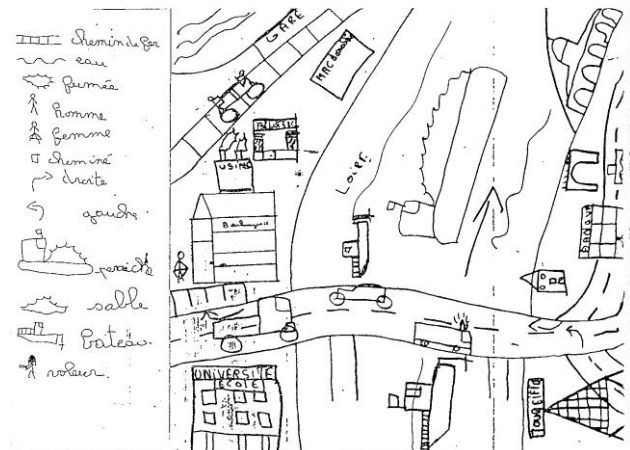 chemin de fer
eau
fumée
homme
femme
cheminé
droite
gauche
péniche
sable
bateau
voleur
GARE
MAC donald
USINE
Loire
BANQUE
UNIVERSITE
ECOLE